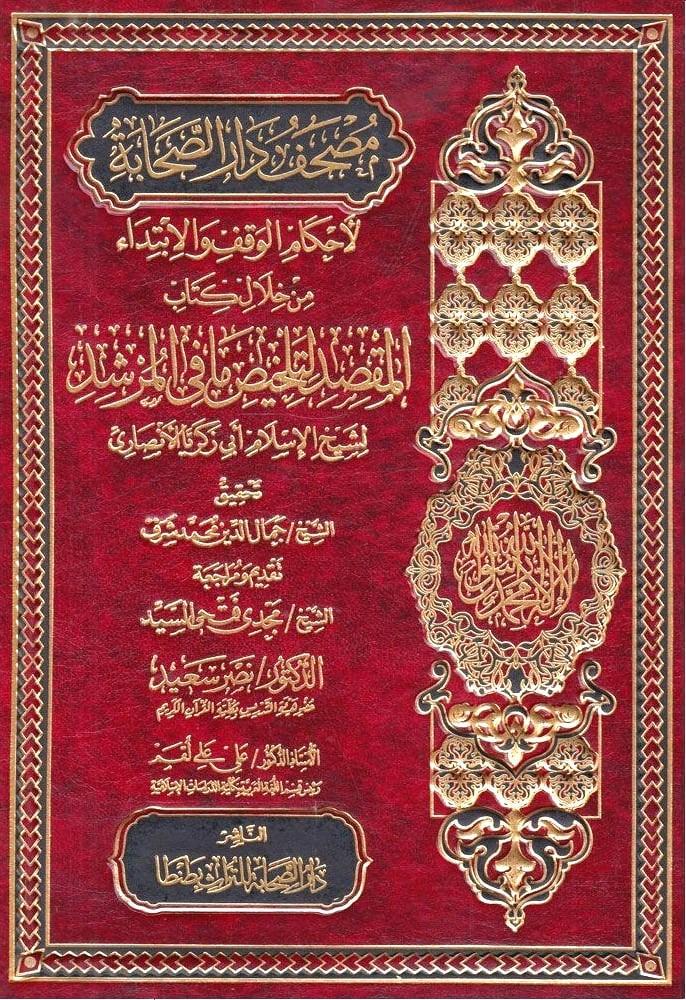 مُصْحَفُ دَارِ الصَّحَابَةِ
لأحكام الوقف والابتداء
من خلال كتاب
المقصد لتلخيص ما في المرشد
لشيخ الإسلام أبي زكريا الأنصاري
تحقيق
الشيخ / جمال الدين محمد شرف
تقديم ومراجعة
الشيخ / مجدي فتحي السيد
الدكتور / نصر سعيد
عضو هيئة التدريس بكلية القرآن الكريم
الأستاذ الدكتور / علي علي لقم
رئيس قسم اللغة العربية بكلية الدراسات الإسلامية
الناشر
دار الصحابة للتراث بطنطا
لا إله إلا الله محمد رسول الله